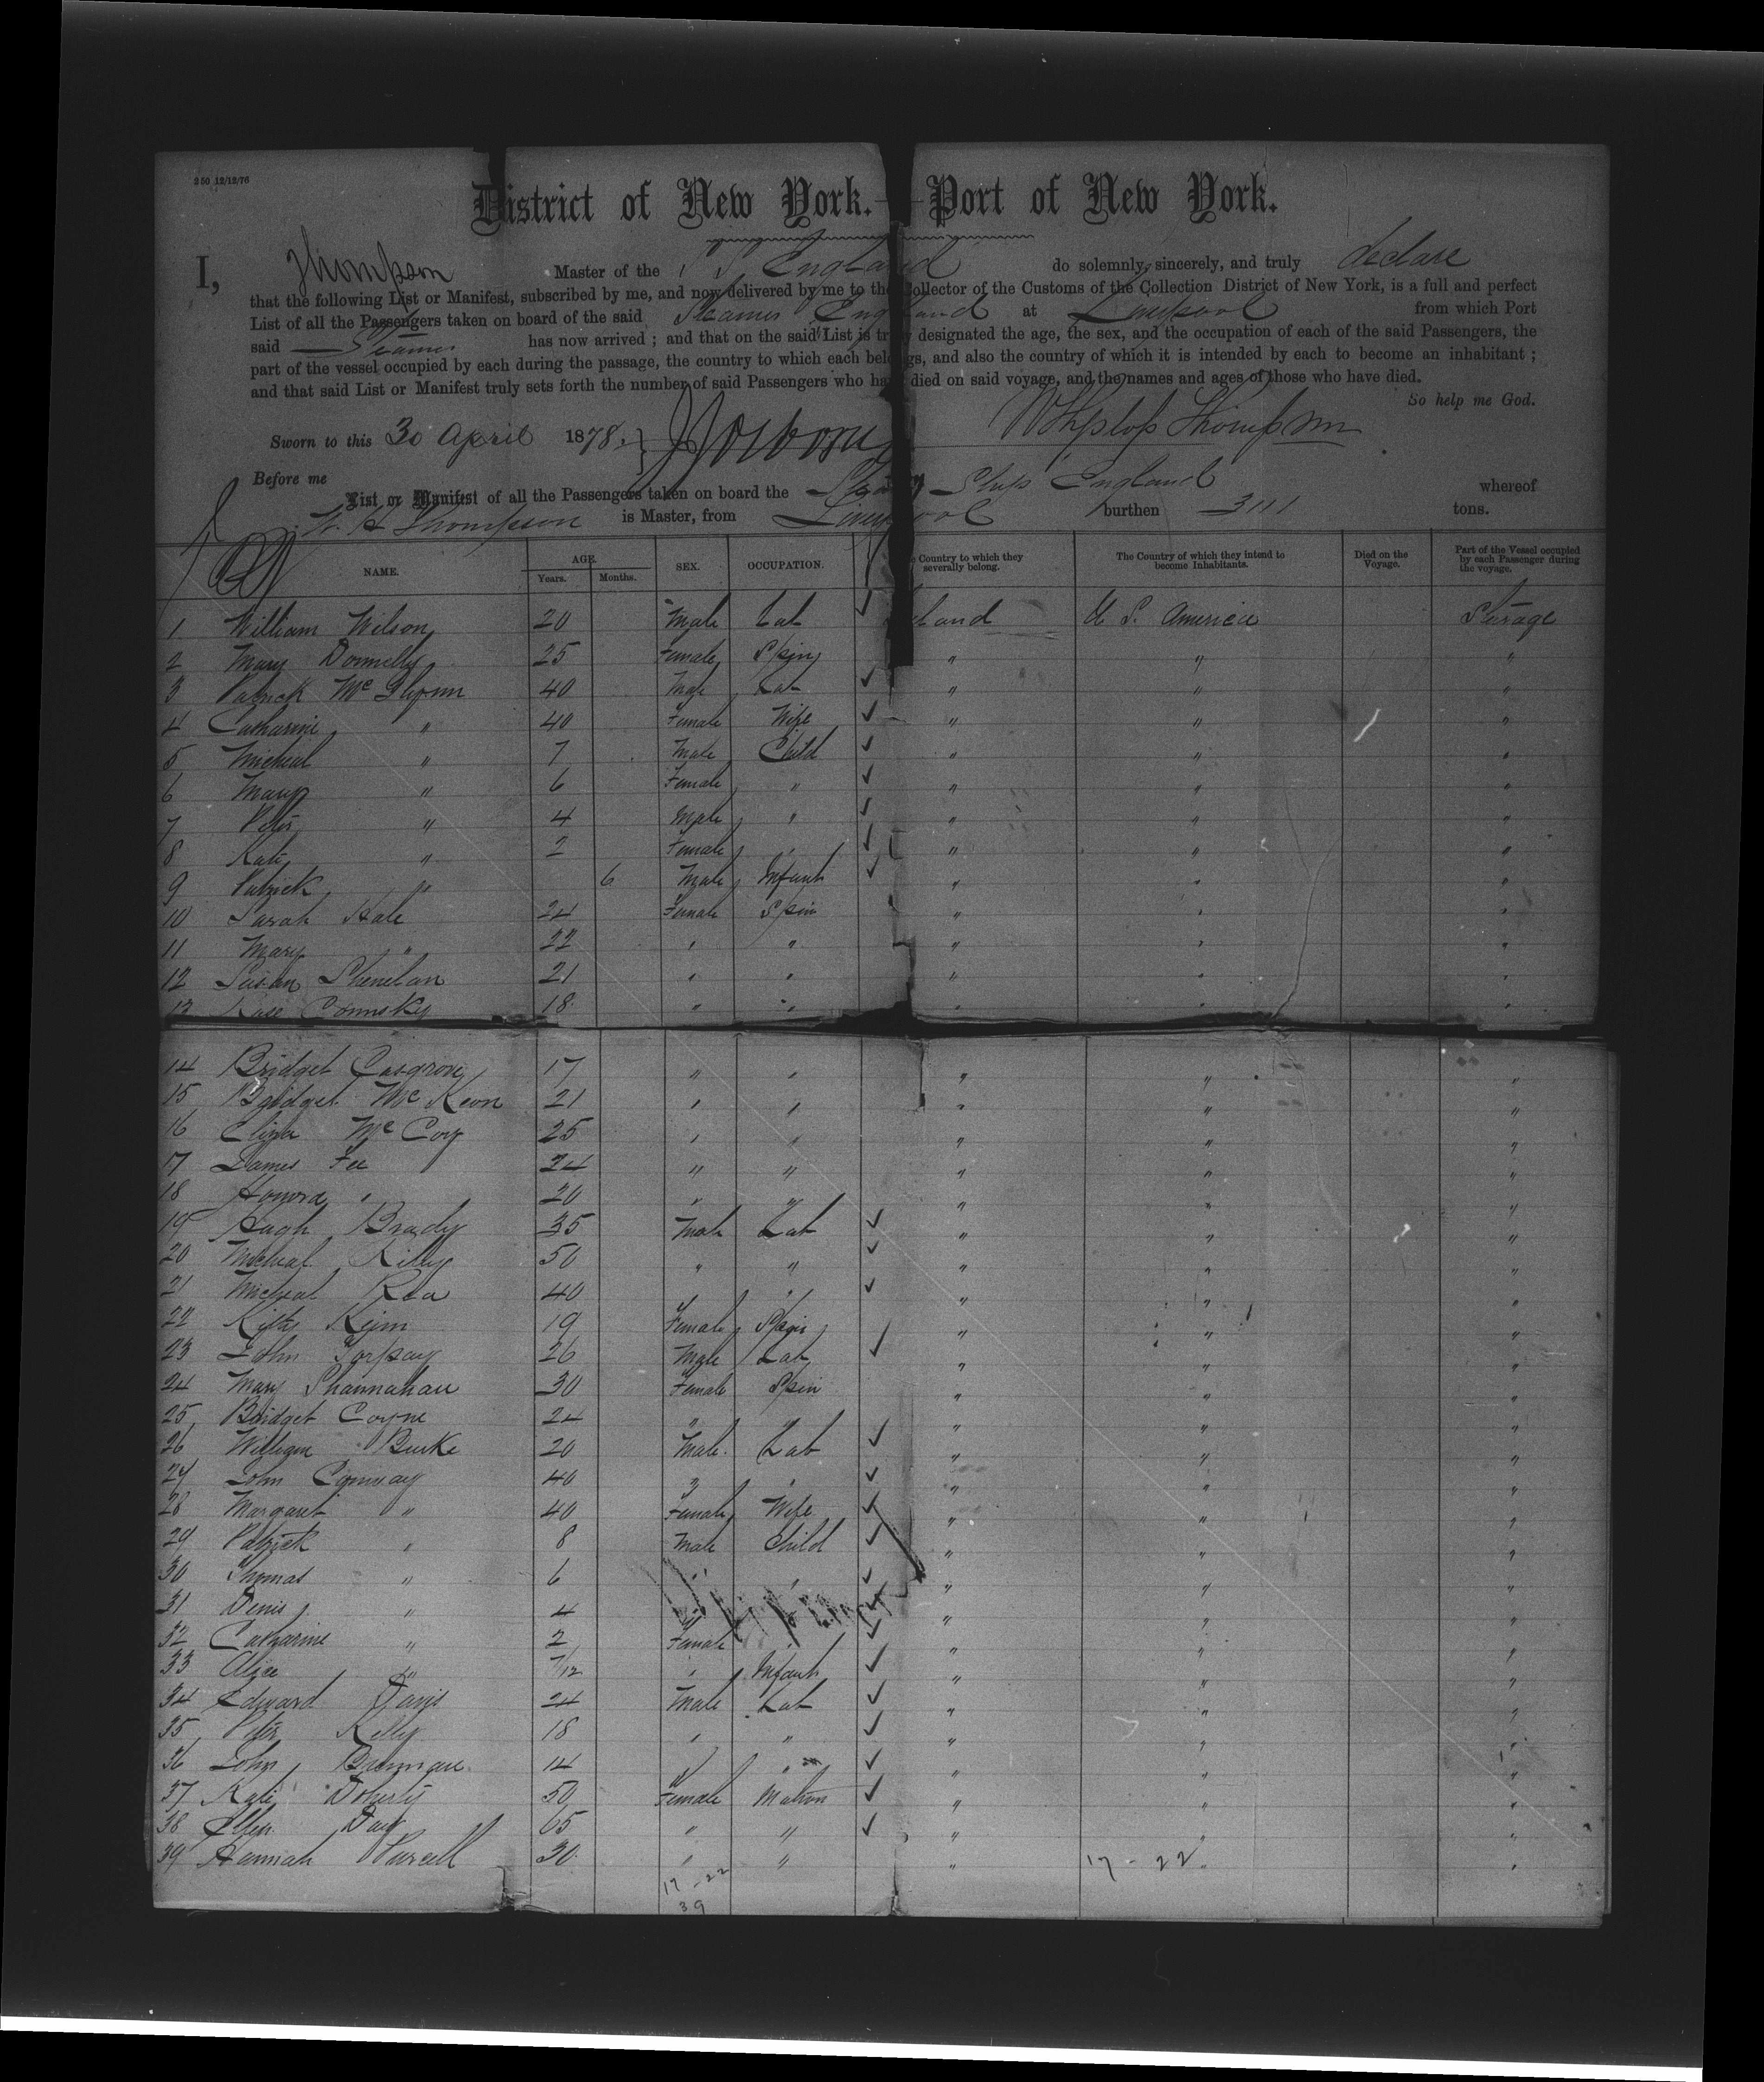 250 12/12/76
District of New York.—Port of New York.
I, Thompson Master of the S S England do solemnly, sincerely, and truly declare
that the following List or Manifest, subscribed by me, and now delivered by me to the Collector of the Customs of the Collection District of New York, is a full and perfect
List of all the Passengers taken on board of the said Steamer England at Liverpool from which Port
said Steamer has now arrived ; and that on the said List is truly designated the age, the sex, and the occupation of each of the said Passengers, the
part of the vessel occupied by each during the passage, the country to which each belongs, and also the country of which it is intended by each to become an inhabitant ;
and that said List or Manifest truly sets forth the number of said Passengers who have died on said voyage, and the names and ages of those who have died.
So help me God.
Sworn to this 30 April 1878. } Thompson
Before me
List or Manifest of all the Passengers taken on board the Steam Ship England whereof
W. H Thompson is Master, from Liverpool burthen 3111 tons.
NAME. AGE. Years. Months. SEX. OCCUPATION. Country to which they severally belong. The Country of which they intend to become Inhabitants. Died on the Voyage. Part of the Vessel occupied by each Passenger during the voyage.
1 William Wilson 20 Male Lab ✓ Ireland U S. America Sterage
2 Mary Donnelly 25 Female Spin " " "
3 Patrick Mc Glynn 40 Male Lab ✓ " " "
4 Catharine " 40 Female Wife ✓ " " "
5 Micheal " 7 Male Child ✓ " " "
6 Mary " 6 Female " ✓ " " "
7 Peter " 4 Male " ✓ " " "
8 Kate " 2 Female " ✓ " " "
9 Patrick " 6 Male Infant ✓ " " "
10 Sarah Hale 24 Female Spin " " "
11 Mary " 22 " " " " "
12 Susan Shenelan 21 " " " " "
13 Rose Comnsky 18 " " " " "
14 Bridget Cosgrove 17 " " " " "
15 Bridget Mc Keon 21 " " " " "
16 Eliza Mc Coy 25 " " " " "
17 James Fee 24 " " " " "
18 Honora " 20 " " " " "
19 Hugh Brady 35 Male Lab ✓ " " "
20 Micheal Kelly 50 " " ✓ " " "
21 Micheal Rea 40 " " ✓ " " "
22 Kitty 19 Female Spin " " "
23 John Torpay 26 Male Lab ✓ " " "
24 Mary Shannahan 30 Female Spin " " "
25 Bridget Coyne 24 " " " " "
26 William Burke 20 Male Lab ✓ " " "
27 John Conway 40 " " ✓ " " "
28 Margaret " 40 Female Wife ✓ " " "
29 Patrick " 8 Male Child ✓ " " "
30 Thomas " 6 " " ✓ " " "
31 Denis " 4 " " ✓ " " "
32 Catharine " 2 Female " ✓ " " "
33 Alice " 7/12 " Infant ✓ " " "
34 Edward Davis 24 Male Lab ✓ " " "
35 Peter Kelly 18 " " ✓ " " "
36 John Brennan 14 " " ✓ " " "
37 Kate Doherty 50 Female Matron ✓ " " "
38 Ellen Day 65 " " ✓ " " "
39 Hannah Purcell 30 " " " " "
17 - 22 17 - 22
39